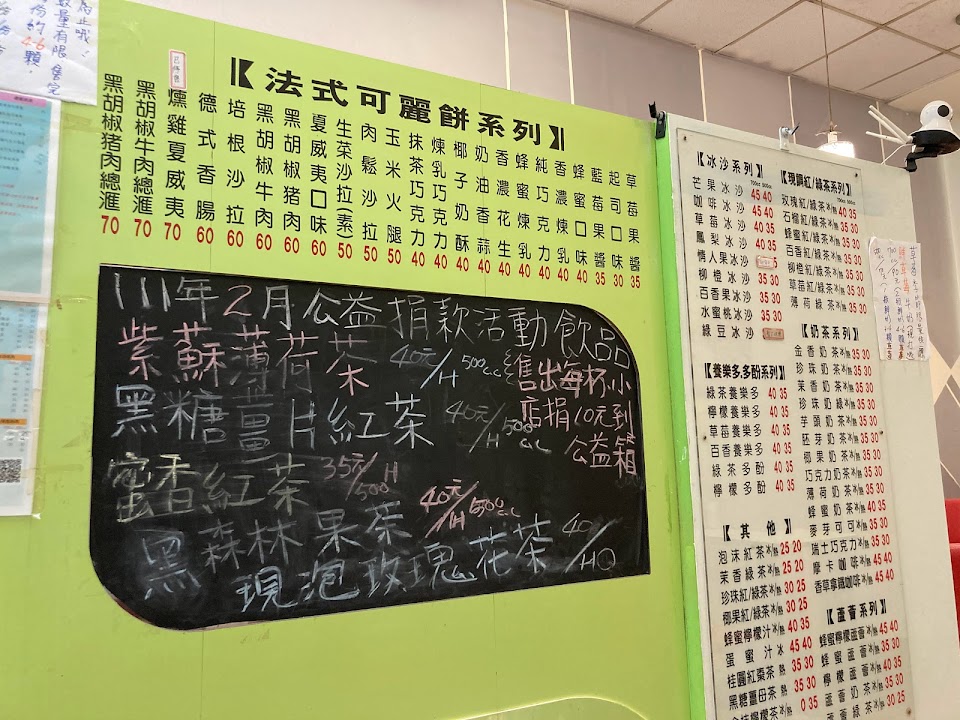 【法式可麗餅系列】
草莓果醬 35
起司口味 30
藍莓果醬 35
蜂蜜口味 40
香濃煉乳 40
純巧克力 40
蜂蜜煉乳 40
香濃花生 40
奶油香蒜 40
椰子奶酥 40
煉乳巧克力 40
抹茶巧克力 40
玉米火腿 50
肉鬆沙拉 50
生菜沙拉(素 50
夏威夷口味 60
黑胡椒豬肉 60
黑胡椒牛肉 60
培根沙拉 60
德式香腸 60
燻雞夏威夷 70
黑胡椒牛肉總滙 70
黑胡椒豬肉總滙 70
111年2月公益捐款活動飲品
紫蘇薄荷茶 40元/H 500c.c
售出每杯小
店捐10元到
公益箱
黑糖薑片紅茶 40元/H 500c.c
蜜香紅茶 35元/H 500
黑森林果茶 40元/H 500c.c
現泡玫瑰花茶 40/H
【冰沙系列】
芒果冰沙 45 40
咖啡冰沙 45 40
草莓冰沙 40 35
鳳梨冰沙 40 35
情人果冰沙
柳橙冰沙 35 30
百香果冰沙 40 35
水蜜桃冰沙 35 30
綠豆冰沙
【養樂多,多酚系列】
綠茶養樂多 40 35
檸檬養樂多 40 35
草莓養樂多 40 35
百香養樂多 40 35
綠茶多酚 40 35
檸檬多酚 40 35
【其他】
泡沫紅茶冰/熱 25 20
茉香綠茶冰/熱 25 20
珍珠紅/綠茶冰/熱 30 25
椰果紅/綠茶冰/熱 30 25
蜂蜜檸檬汁冰/熱 40 35
蛋蜜汁冰 45 40
桂圓紅棗茶 熱 35 30
黑糖薑母茶 熱 35 30
【現調紅/綠茶系列】
玫瑰紅/綠茶冰/熱 40 35
石榴紅/綠茶冰/熱 35 30
蜂蜜紅/綠茶冰/熱 35 30
百香紅/綠茶冰/熱 35 30
柳橙紅/綠茶冰/熱 35 30
草莓紅/綠茶冰/熱 35 30
薄荷綠茶冰/熱 35 30
【奶茶系列】
金香奶茶冰/熱 35 30
珍珠奶茶冰/熱 35 30
茉香奶茶冰/熱 35 30
珍珠奶綠冰/熱 35 30
芋頭奶茶冰/熱 35 30
胚芽奶茶冰/熱 35 30
椰果奶茶冰/熱 35 30
巧克力奶茶冰/熱 35 30
薄荷奶茶冰/熱 35 30
蜂蜜奶茶冰/熱 35 30
麥芽可可冰/熱 35 30
瑞士巧克力冰/熱 35 30
摩卡咖啡冰/熱 45 40
香草拿鐵咖啡冰/熱 45 40
【蘆薈系列】
蜂蜜檸檬蘆薈冰/熱 45 40
蜂蜜蘆薈冰/熱 35 30
檸檬蘆薈冰/熱 40 35
蘆薈奶茶冰/熱 35 30
蘆薈綠茶冰/熱 30 25